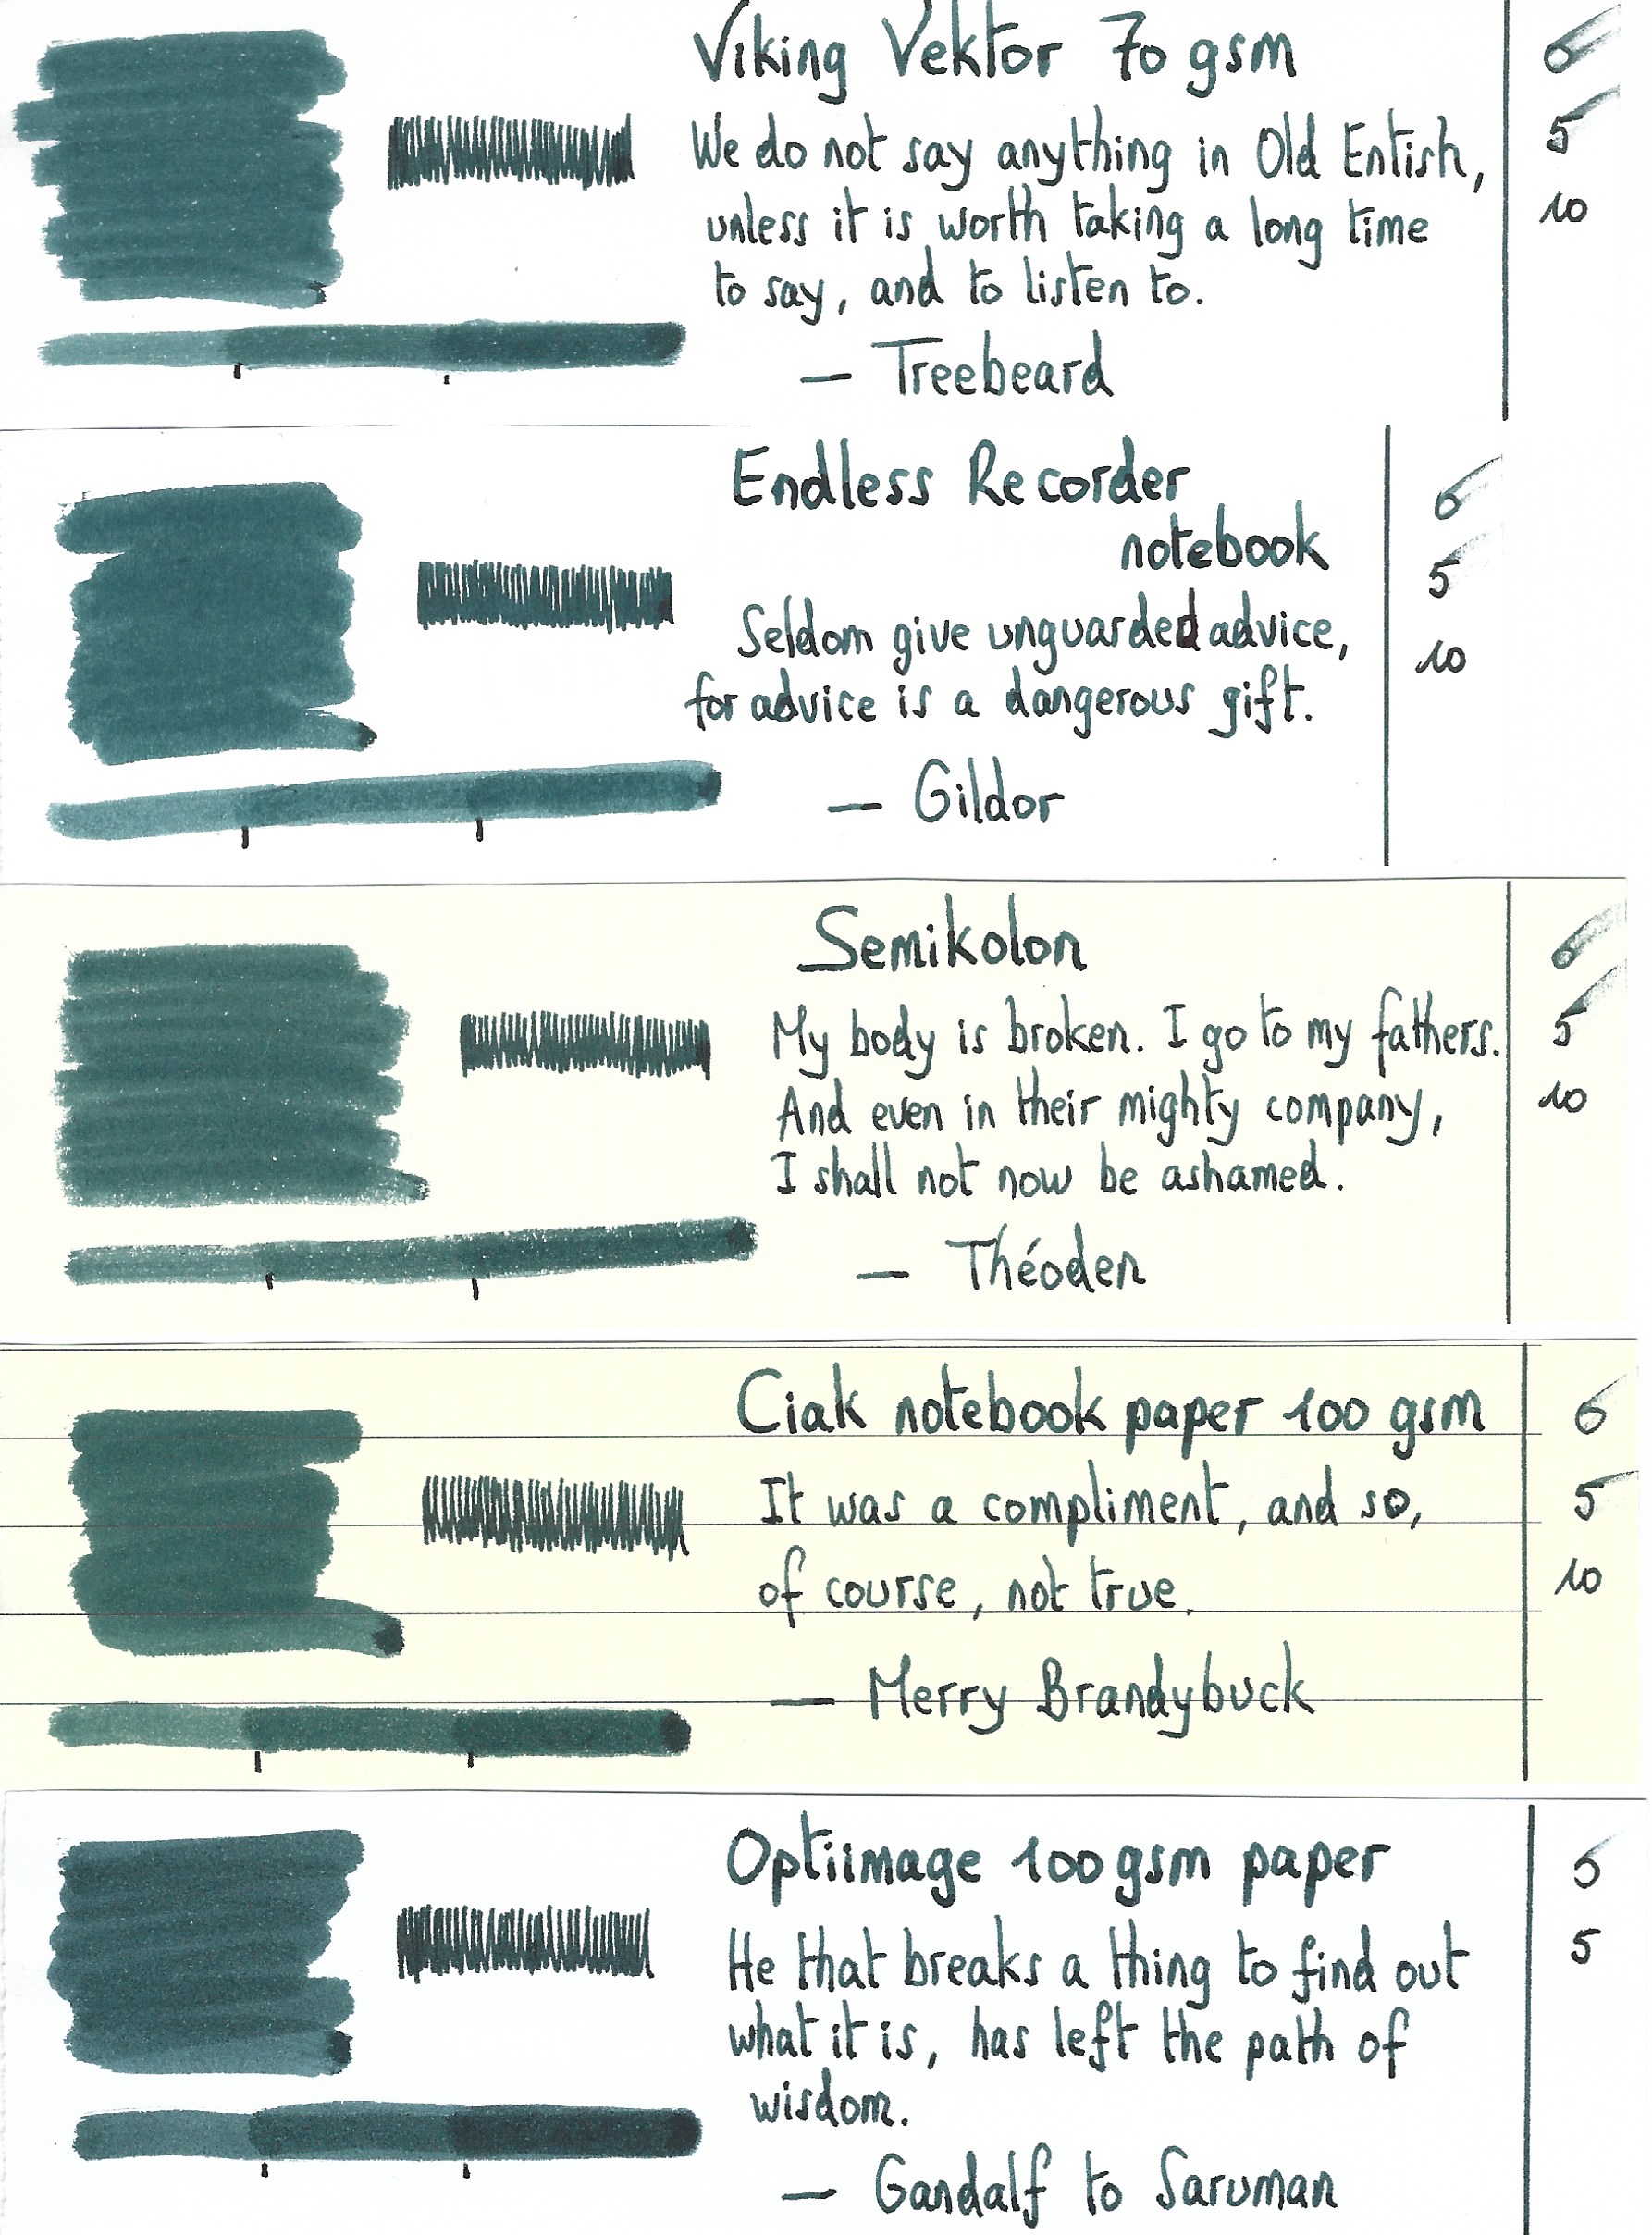 Viking Vektor 70 gsm
We do not say anything in Old Entish,
unless it is worth taking a long time
to say, and to listen to.
— Treebeard
0
5
10
Endless Recorder
notebook
Seldom give unguarded advice,
for advice is a dangerous gift.
— Gildor
0
5
10
Semikolon
My body is broken. I go to my fathers.
And even in their mighty company,
I shall not now be ashamed.
— Théoden
0
5
10
Ciak notebook paper 100 gsm
It was a compliment, and so,
of course, not true.
— Merry Brandybuck
0
5
10
Optiimage 100 gsm paper
He that breaks a thing to find out
what it is, has left the path of
wisdom.
— Gandalf to Saruman
5
5